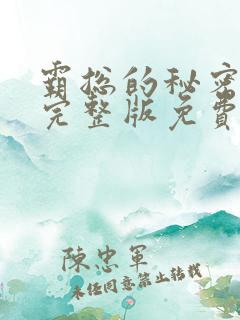 霸总的秘密
完整版免费
陳忠軍
未经同意禁止转载